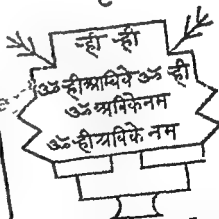 ह्री ह्री
ॐ ह्री अंबिके ॐ ह्री
ॐ अंबिके नम
ॐ ह्री अंबिके नम